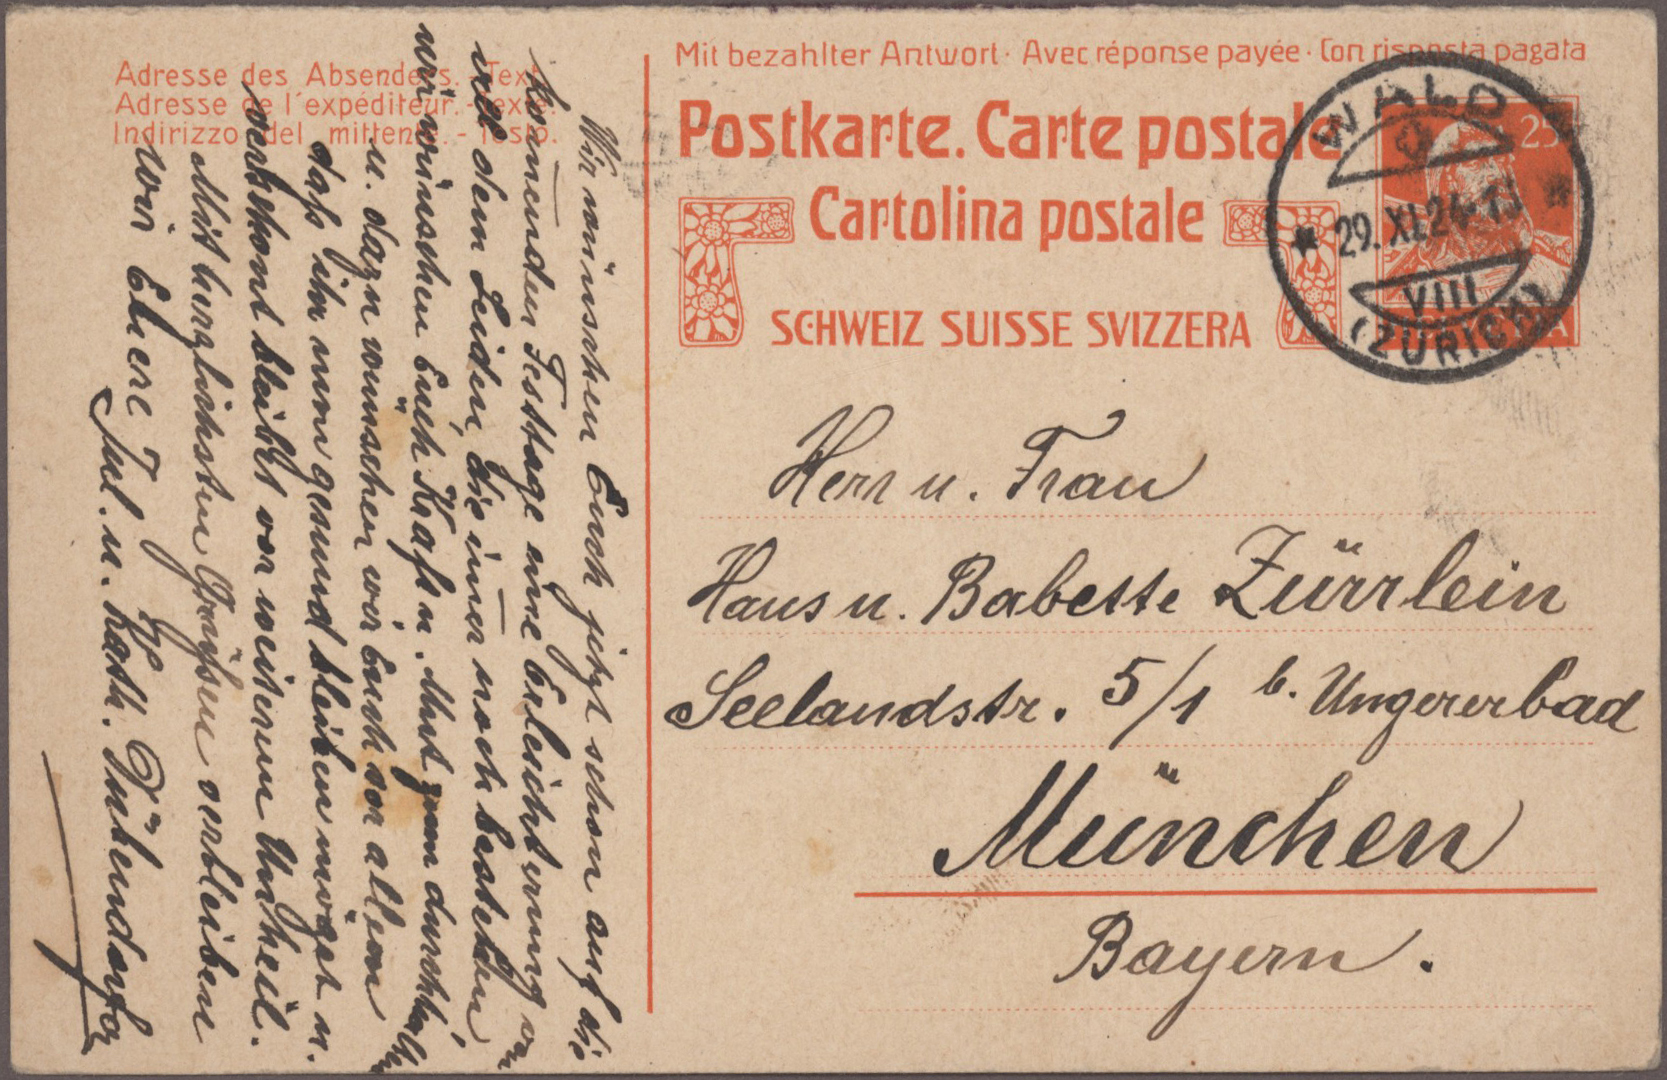 Mit bezahlter Antwort · Avec réponse payée · Con risposta pagata
Postkarte. Carte postale
Cartolina postale
SCHWEIZ SUISSE SVIZZERA
25
WALD
29. XI. 24
VIII
(ZÜRICH)
Adresse des Absenders. - Text.
Adresse de l'expéditeur. - Texte.
Indirizzo del mittente. - Testo.
Herr u. Frau
Hans u. Babette Zürrlein
Seelandstr. 5/1 b. Ungererbad
München
Bayern.
Wir wünschen Euch jetzt schon auf die
kom̄enden Festtage eine Erleichterung von
all dem Leiden, die im̄er noch bestehen
wir wünschen Euch Kraft u. Mut zum durchhalten
u. dazu wünschen wir Euch vor allem
daß ihr nun gesund bleiben möget u.
verschont bleibt vor weiterem Unheil.
Mit herzlichsten Grüßen verbleiben
wir Euere
Jul. u. Kath.